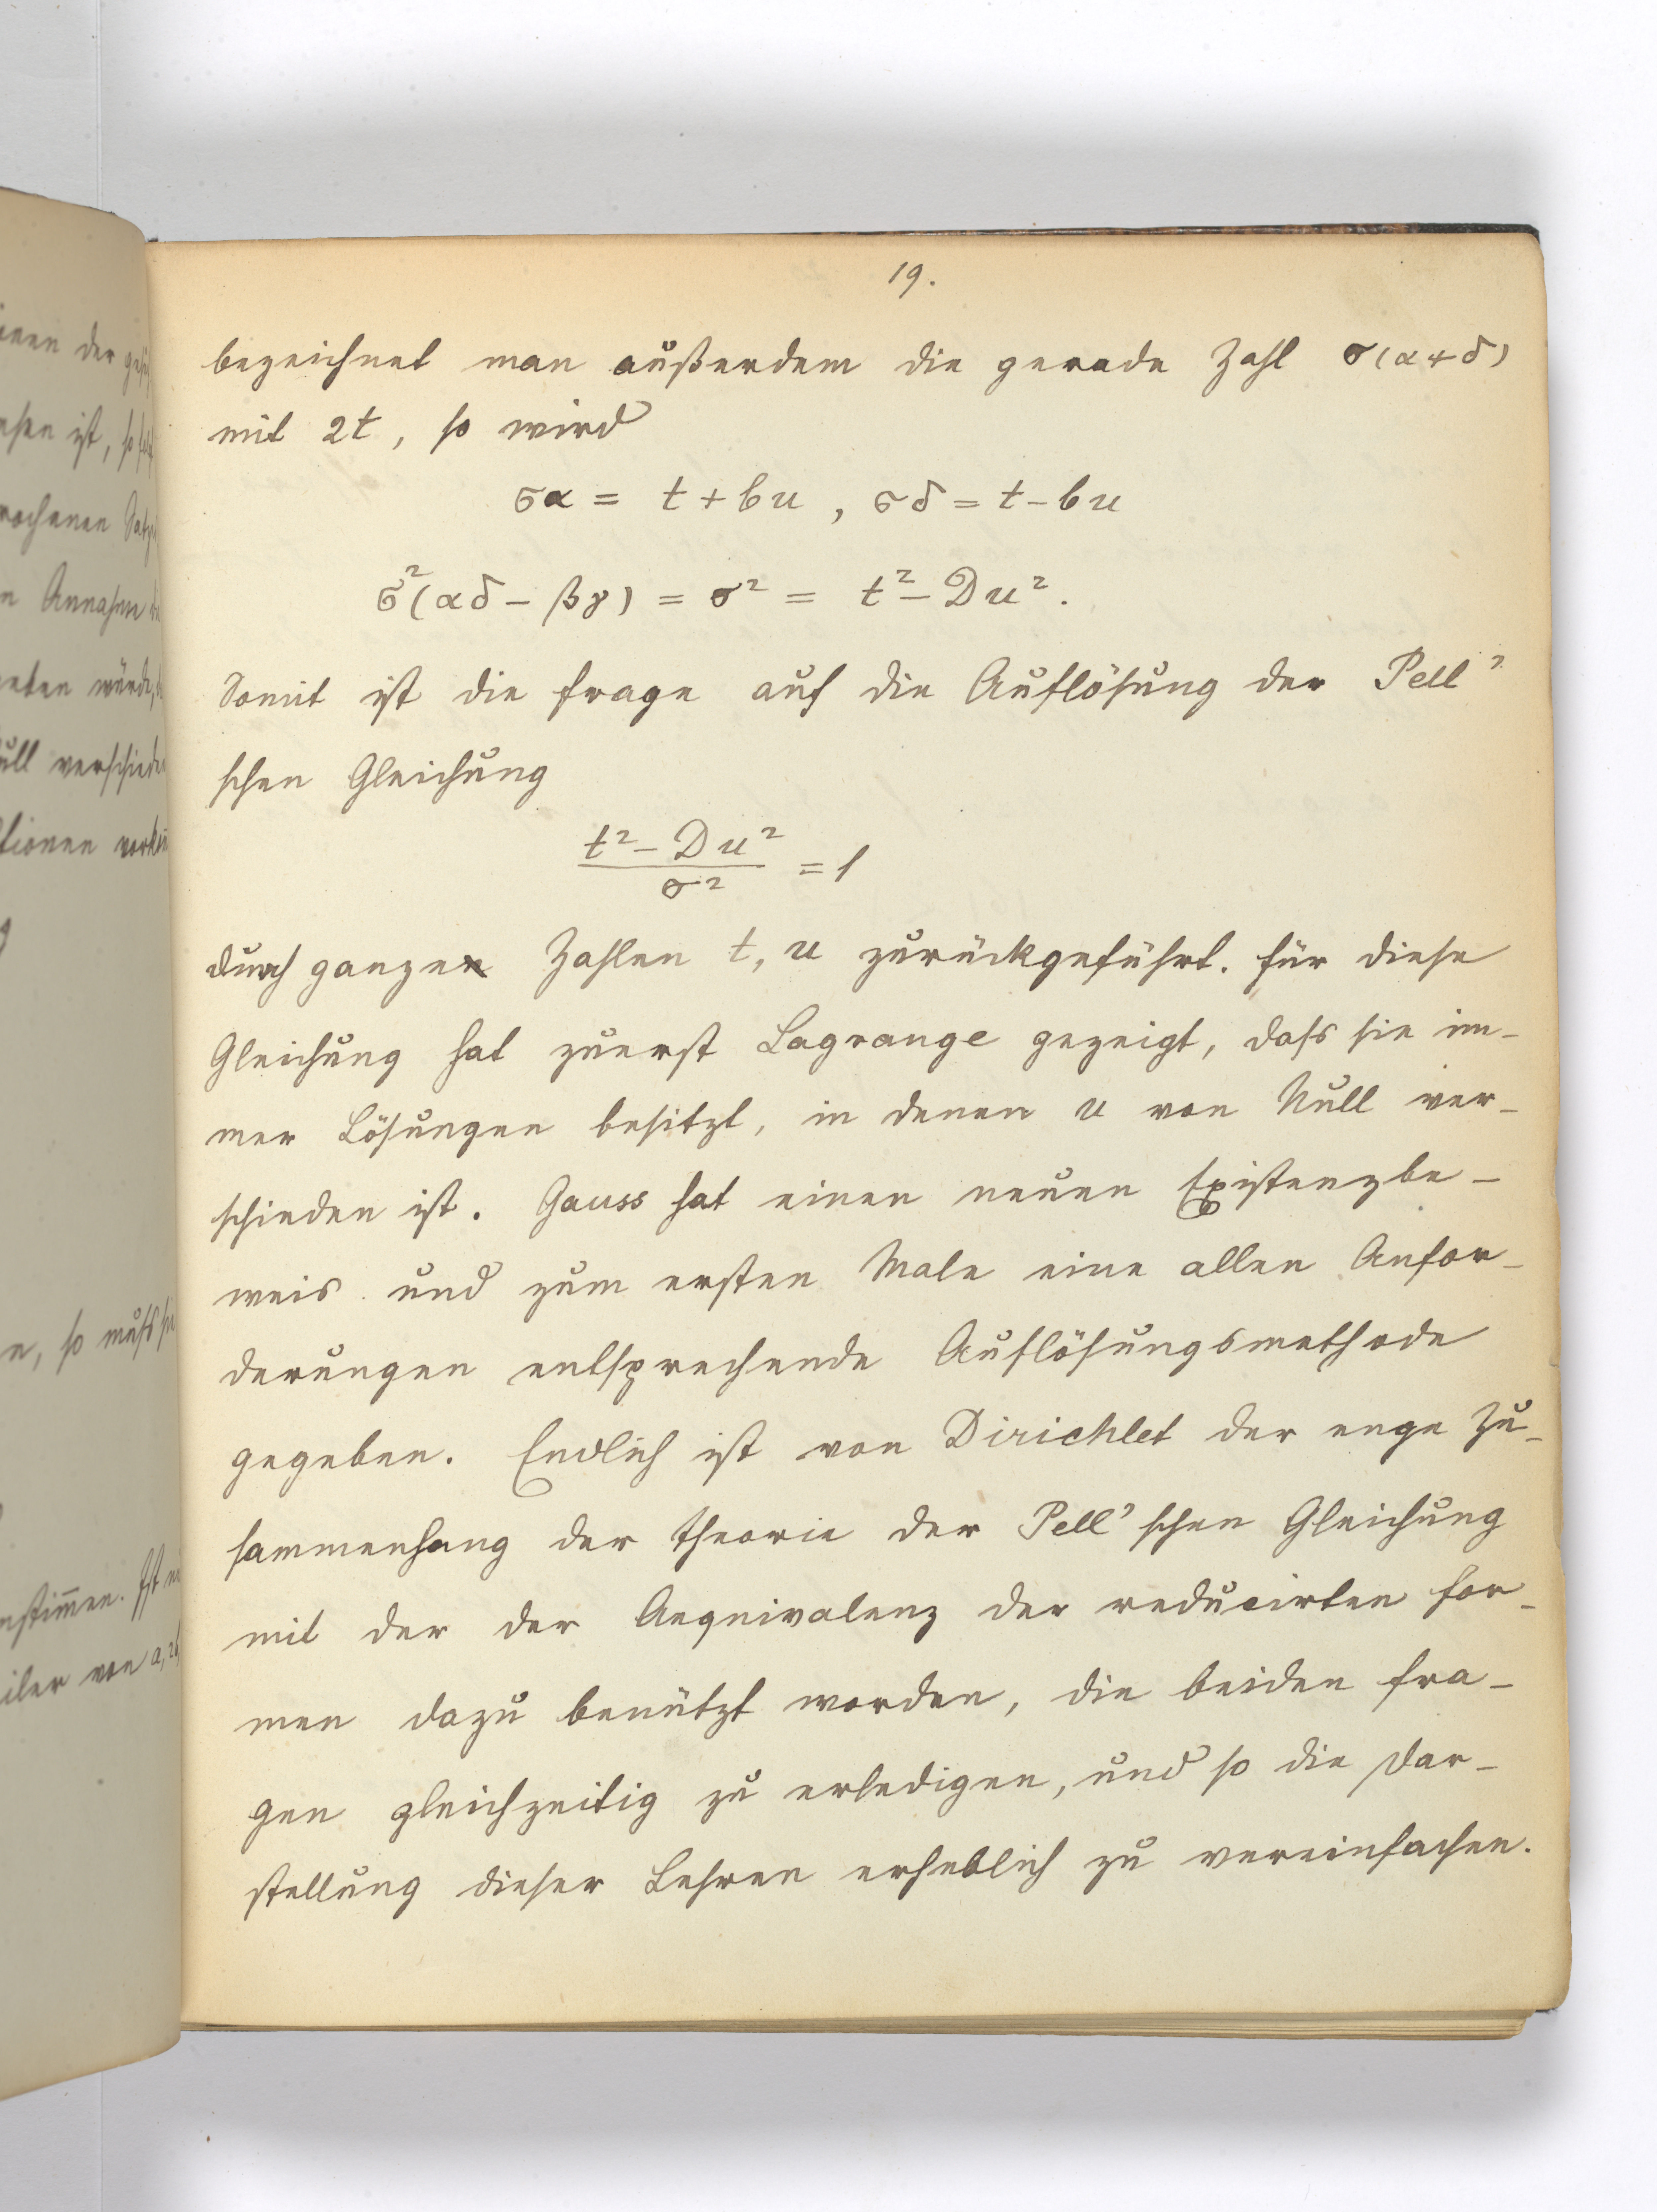 19.
bezeichnet man außerdem die gerade Zahl σ(α+δ)
mit 2t, so wird
σα = t + bu, σδ = t - bu
σ²(αδ - βγ) = σ² = t² - Du².
Somit ist die Frage auf die Auflösung der Pell'
schen Gleichung
(t² - Du²)/σ² = 1
durch ganze Zahlen t, u zurückgeführt. Für diese
Gleichung hat zuerst Lagrange gezeigt, dass sie im-
mer Lösungen besitzt, in denen u von Null ver-
schieden ist. Gauss hat einen neuen Existenzbe-
weis und zum ersten Male eine allen Anfor-
derungen entsprechende Auflösungsmethode
gegeben. Endlich ist von Dirichlet der enge Zu-
sammenhang der Theorie der Pell'schen Gleichung
mit der der Aequivalenz der reducirten For-
men dazu benützt worden, die beiden Fra-
gen gleichzeitig zu erledigen, und so die Dar-
stellung dieser Lehren erheblich zu vereinfachen.